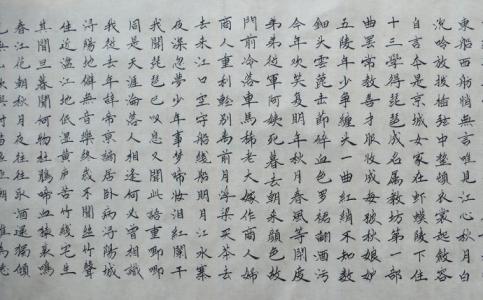 東船西舫悄無言唯見江心秋月白
沉吟放撥插弦中整頓衣裳起斂容
自言本是京城女家在蝦蟆陵下住
十三學得琵琶成名屬教坊第一部
曲罷常教善才服妝成每被秋娘妒
五陵年少爭纏頭一曲紅綃不知數
鈿頭雲篦擊節碎血色羅裙翻酒污
今年歡笑復明年秋月春風等閒度
弟走從軍阿姨死暮去朝來顏色故
門前冷落車馬稀老大嫁作商人婦
商人重利輕別離前月浮梁買茶去
去來江口空守船繞船明月江水寒
夜深忽夢少年事夢啼妝淚紅闌干
我聞琵琶已嘆息又聞此語重唧唧
同是天涯淪落人相逢何必曾相識
我從去年辭帝京謫居臥病潯陽城
潯陽地僻無音樂終歲不聞絲竹聲
住近湓江地低溫黃蘆苦竹繞宅生
其間旦暮聞何物杜鵑啼血猿哀鳴
春江花朝秋月夜往往取酒還獨傾